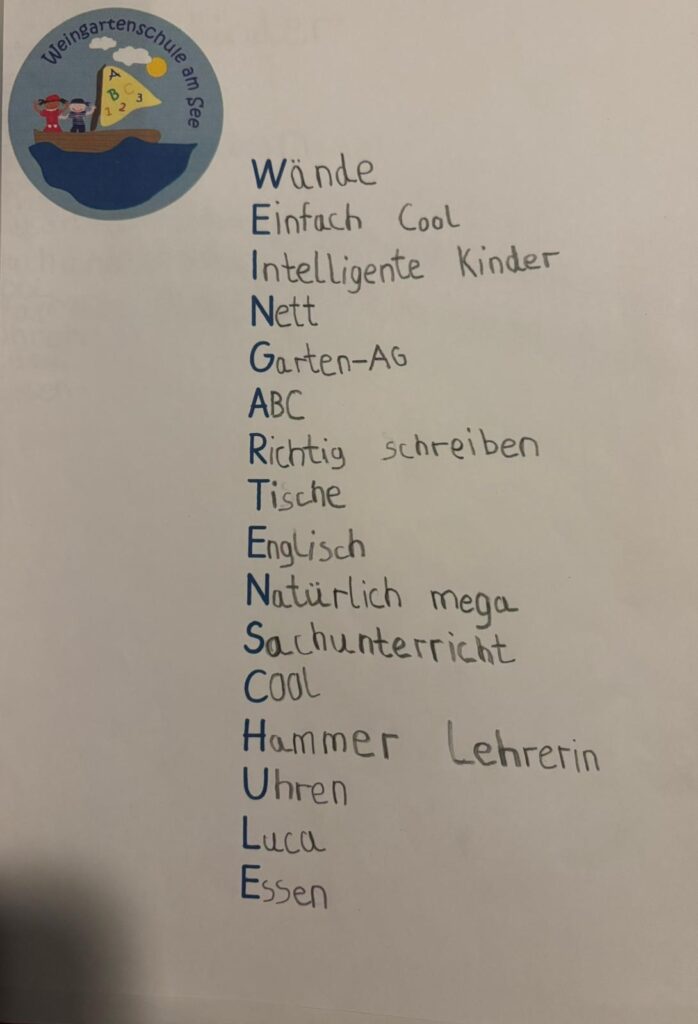 Weingartenschule am See
A
B C 3
1 2
Wände
Einfach Cool
Intelligente Kinder
Nett
Garten-AG
ABC
Richtig schreiben
Tische
Englisch
Natürlich mega
Sachunterricht
Cool
Hammer Lehrerin
Uhren
Luca
Essen